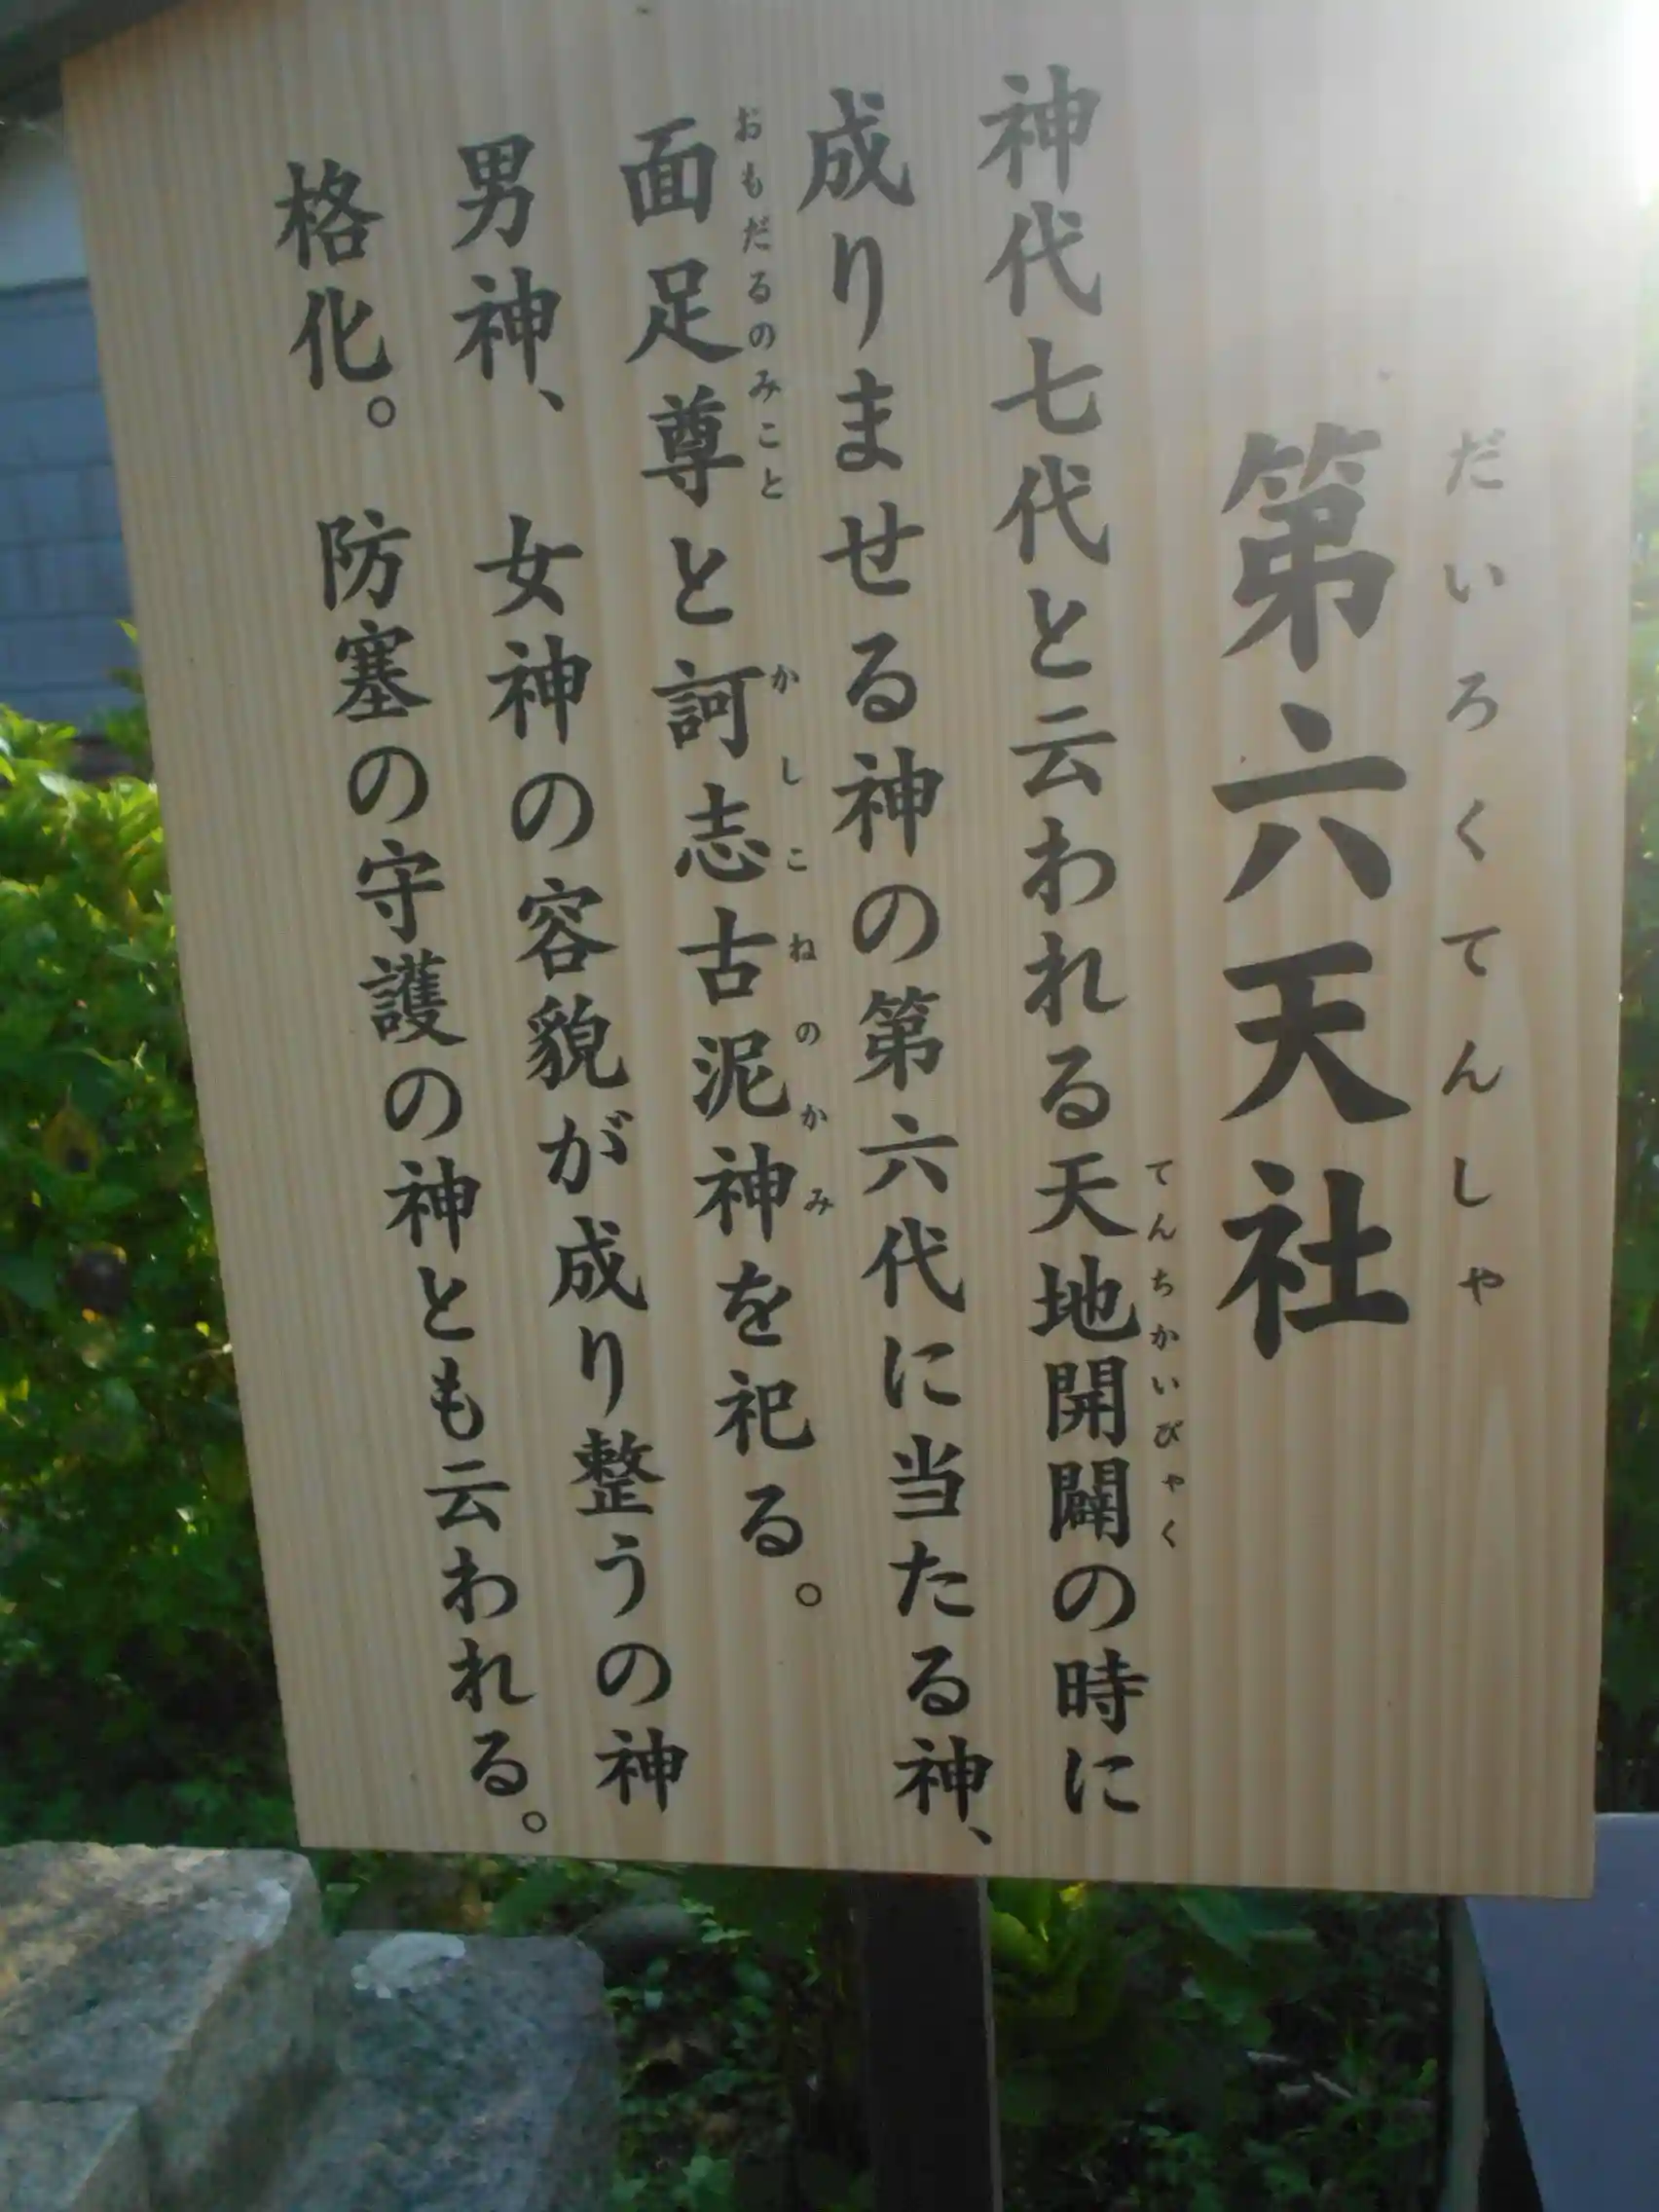 だいろくてんしゃ
第六天社
てんちかいびゃく
神代七代と云われる天地開闢の時に
成りませる神の第六代に当たる神、
おもだるのみこと かしこねのかみ
面足尊と訶志古泥神を祀る。
男神、女神の容貌が成り整うの神
格化。防塞の守護の神とも云われる。